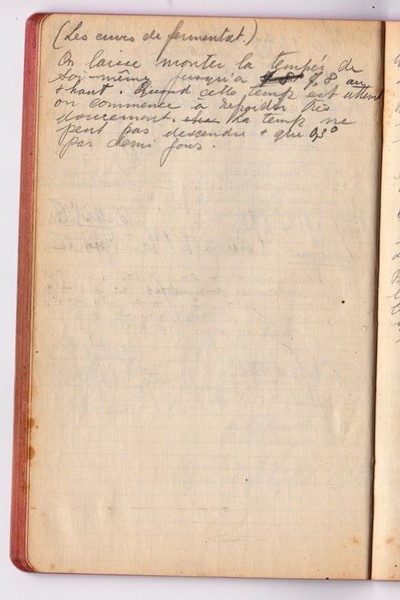 (Les cuves de fermentat.)
On laisse monter la tempér de
soi-même jusqu'à 7,8 au
+ haut. Quand cette temp est atteint
on commence à refroidir très
doucement. La temp ne
peut pas descendre + que 0,3°
par demi jour.